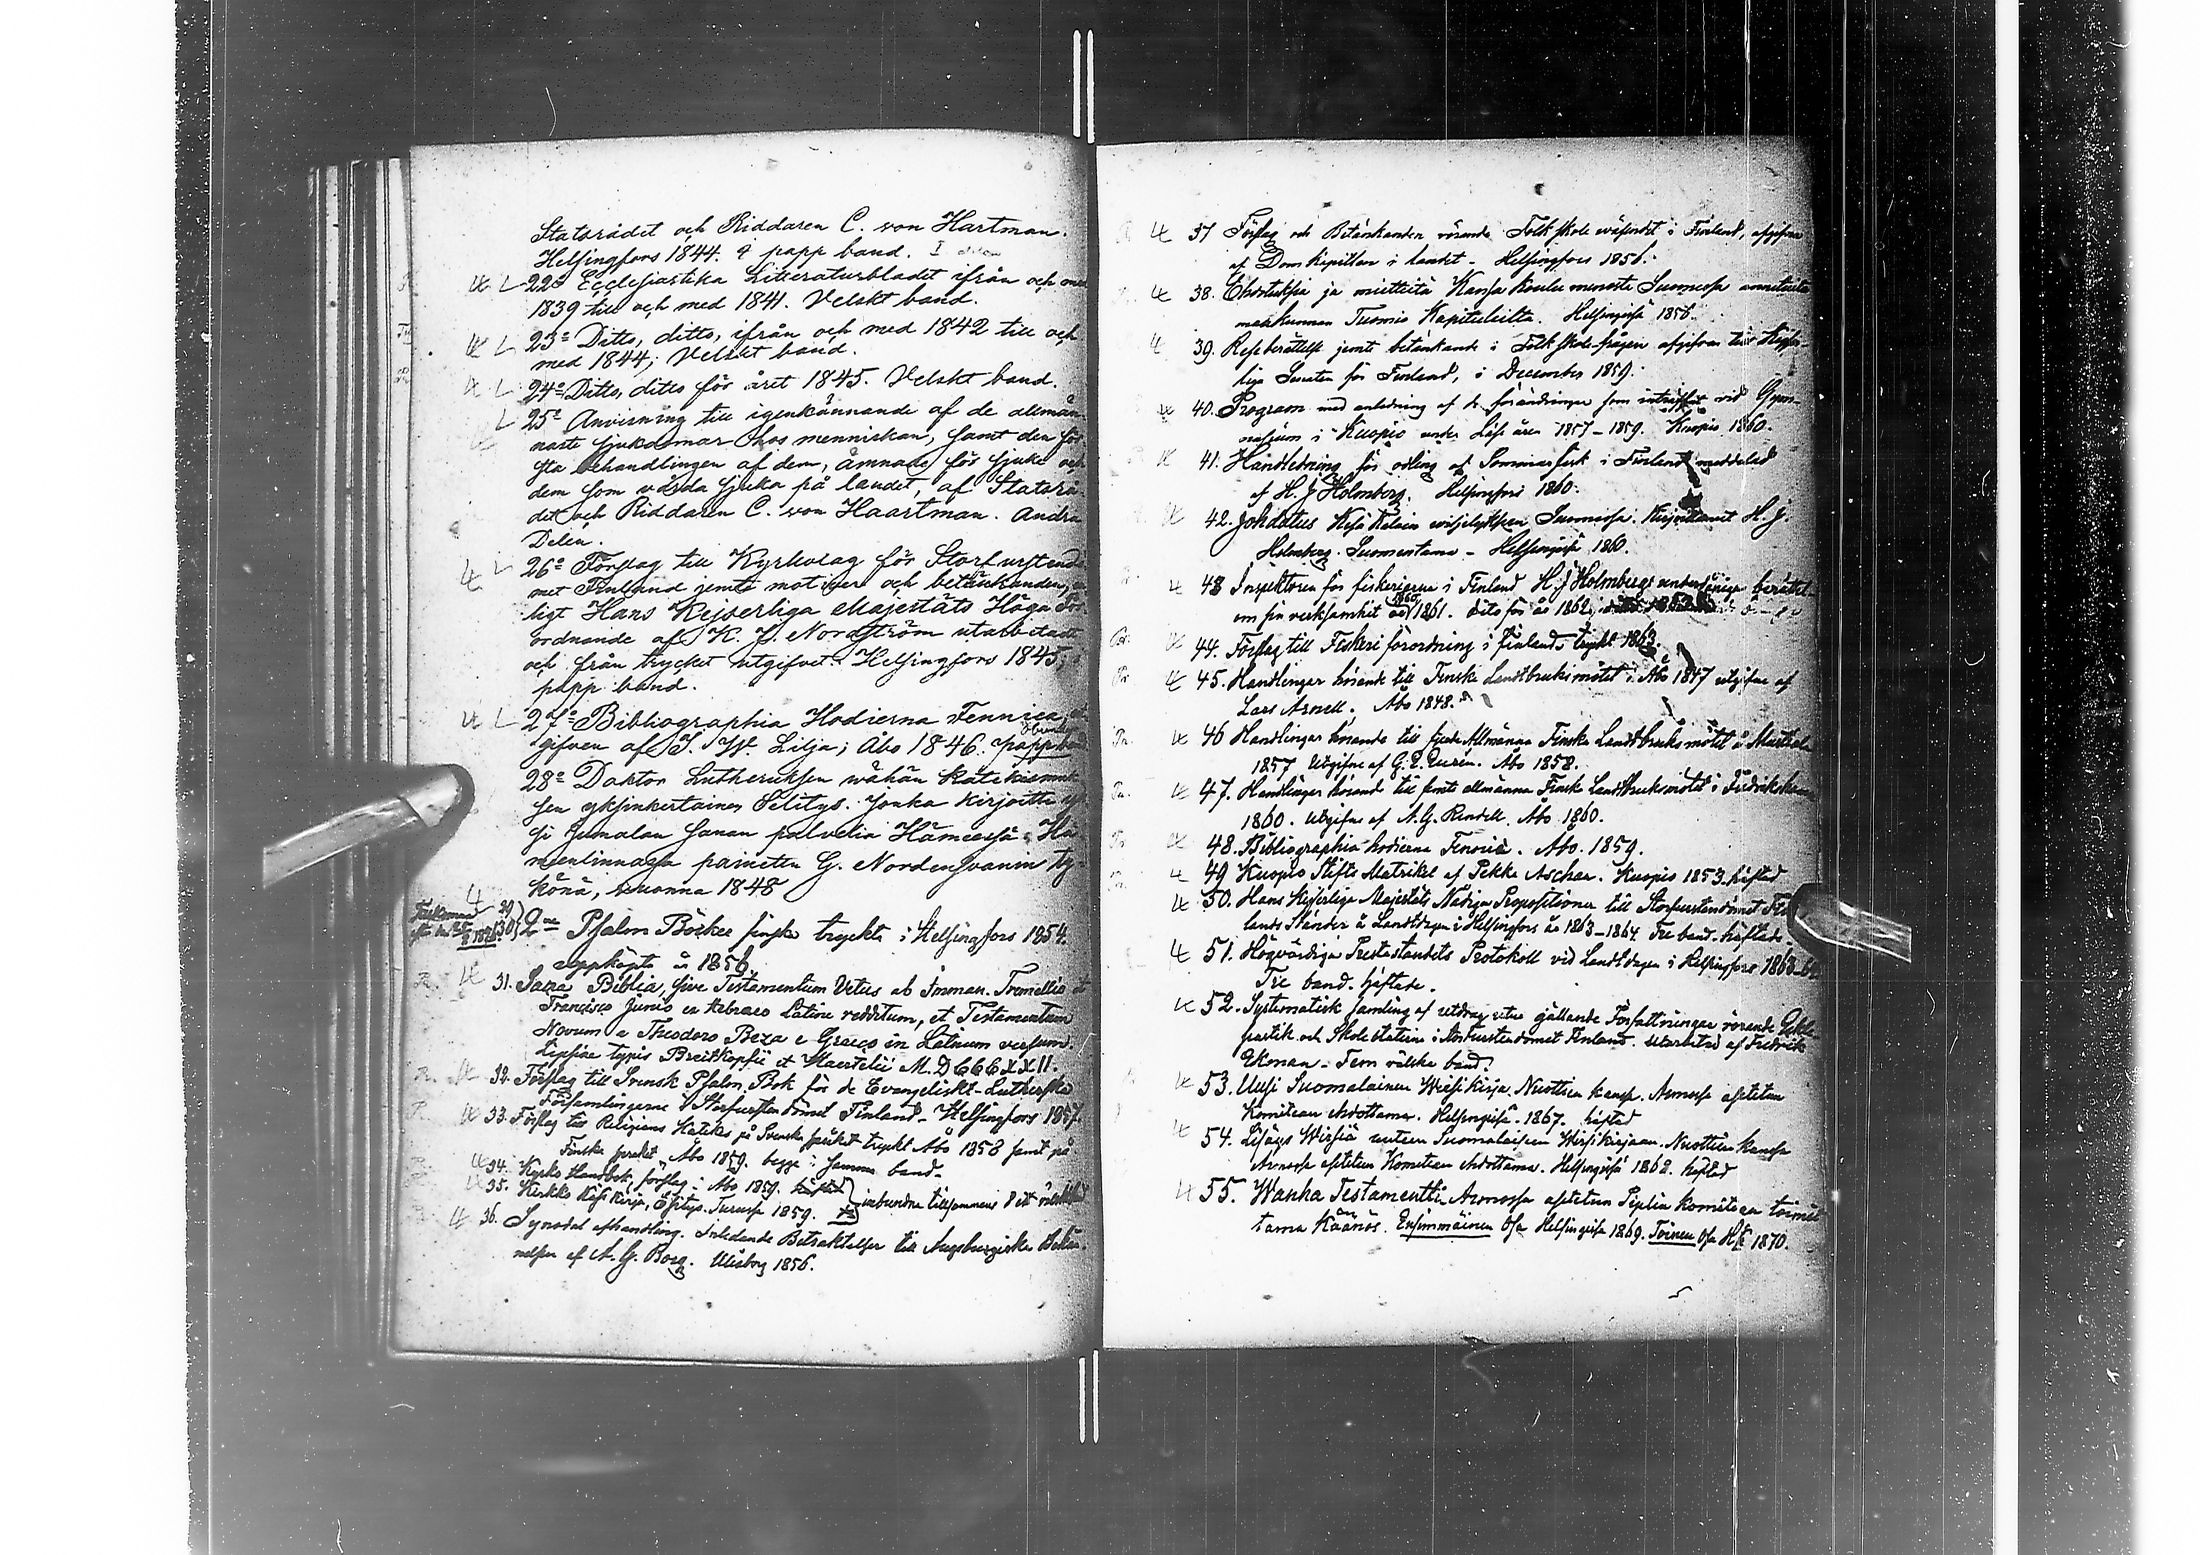 Statsrådet och Riddaren C. von Hartman.
Helsingfors 1844. i papp band. I
22o Ecclesiastika Litteraturbladet ifrån och med
1839 till och med 1841. Velskt band.
23o Ditto, ditto, ifrån och med 1842 till och
med 1844; Velskt band.
24o Ditto, ditto för året 1845. Velskt band.
25o Anvisning till igenkännande af de allmän-
naste sjukdomar hos menniskan, samt den för
sta behandlingen af dem, ämnad för sjuke och
dem som vårda sjuka på landet, af Statsrå-
det och Riddaren C. von Haartman. Andra
Delen.
26o Förslag till Kyrkolag för Storfurstendö
met Finland jemte motiver och betänkanden,
ligt Hans Kejserliga Majestäts Höga För
ordnande af K. J. Nordström utarbetadt
och från trycket utgifvet. Helsingfors 1845;
papp band.
27o Bibliographia Hodierna Fennica,
gifven af J. W. Lilja; Åbo 1846. papp
28o Doktor Lutheruksen wähän Katekismuk
sen yksinkertainen Selitys. Jonka kirjoitti
si Jumalan Sanan palvelia Hämeessä. Hä
meenlinnassa painettu G. Nordensvanin ty-
könä, vuonna 1848
29
30 2ne Psalm Böcker finska tryckta i Helsingfors 1854.
uppköpta år 1856
31. Sacra Biblia, sive Testamentum Vetus ab Imman. Tremellio et
Francisco Junio ex Hebraeo Latine redditum, et Testamentum
Novum a Theodoro Beza e Graeco in Latinum versum.
Lipsiae typis Breitkopfii et Haertelii M.DCCCXXII.
32. Förslag till Svensk Psalm Bok för de Evangeliskt-Lutherska
Församlingarne i Storfurstendömet Finland. Helsingfors 1857.
33. Förslag till Religions Katekes på Svenska språket tryckt Åbo 1858 samt på
Finska språket, Åbo 1859. begge i samma band.
34. Kyrko Handbok, förslag i Åbo 1859. häftad
35. Kirkko Käsi Kirja, Esitys. Turussa 1859. inbundna tillsammans i ett
36. Synodal afhandling. Inledande Betraktelser till Augsburgiska Bekän-
nelsen af A. G. Borg. Uleåborg 1856.
37 Förslag och Betänkanden rörande Folkskole väsendet i Finland, afgifna
af Dom Kapitlen i landet. Helsingfors 1856.
38. Ehdotuksia ja mietteitä Kansa koulu menosta Suomessa annettuita
maakunnan Tuomio Kapituleilta. Helsingissä 1856.
39. Reseberättelse jemte betänkande i Folkskole frågan afgifven till Kejser-
liga Senaten för Finland, i December 1859.
40. Program med anledning af de förändringar som inträffat vid Gym-
nasium i Kuopio under Läse åren 1857-1859. Kuopio 1860.
41. Handledning för odling af Sommarfisk i Finland meddelad
af H. J. Holmberg. Helsingfors 1860.
42. Johdatus Kesä Kalain wiljelykseen Suomessa. Kirjoittanut H. J.
Holmberg. Suomentama - Helsingissä 1860.
43 Inspektoren för fiskerierna i Finland H. J. Holmbergs underdåniga berättel
om sin verksamhet år 1860, 1861. dito för år 1862,
44. Förslag till Fiskeri förordning i Finland tryckt 1863.
45. Handlingar hörande till Finska Landtbruksmötet i Åbo 1847 utgifne af
Lars Arnell. Åbo 1848.
46 Handlingar hörande till fjerde Allmänna Finska Landtbruks mötet å Mustiala
1857 Utgifne af G. E. Eurén. Åbo 1858.
47. Handlingar hörande till femte allmänna Finska Landtbruksmötet i Fredrikshamn
1860. utgifne af A. G. Rindell. Åbo 1860.
48. Bibliographia hodierna Fennica. Åbo. 1859.
49 Kuopio Stifts Matrikel af Pekka Aschan. Kuopio 1853. häftad
50. Hans Kejserliga Majestäts Nådiga Propositioner till Storfurstendömet Fin
lands Ständer å Landtdagen i Helsingfors år 1863-1864. Tre band. häftade.
51. Högvördiga Presteståndets Protokoll vid Landtdagen i Helsingfors 1863-6
Tre band. häftade.
52. Systematisk samling af utdrag utur gällande Författningar rörande Eckle-
siastik och Skole staterne i Storfurstendömet Finland. utarbetad af Fredrik
Ekman. Fem välska band.
53. Uusi Suomalainen Wirsikirja. Nuottien kanssa. Armossa asetetun
Komitean ehdottama. Helsingissä. 1867. häftad
54. Lisäys Wirsiä uuteen Suomalaiseen Wirsikirjaan. Nuottien kanssa
Armossa asetetun Komitean ehdottama. Helsingissä 1868. häftad
55. Wanha Testamentti. Armossa asetetun Piplia komitean toimit-
tama Käänös. Ensimmäinen Osa Helsingissä 1869. Toinen Osa H:ssä 1870.
5